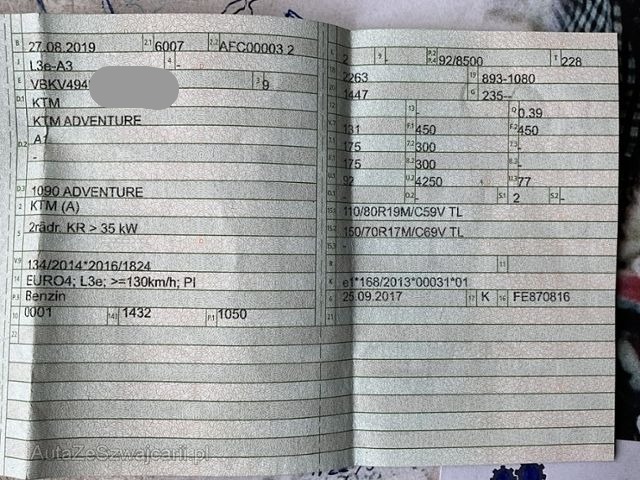 B 27.08.2019 2.1 6007 2.2 AFC00003 2
J L3e-A3 4 -
E VBKV494 3 9
D.1 KTM
KTM ADVENTURE
D.2 A1
-
D.3 1090 ADVENTURE
2 KTM (A)
5 2rädr. KR > 35 kW
V.9 134/2014*2016/1824
14 EURO4; L3e; >=130km/h; PI
P.3 Benzin
10 0001 14.1 1432 P.1 1050
22
L 2 9 - P.2 P.4 92/8500 T 228
18 2263 19 893-1080
20 1447 G 235--
12 - 13 - Q 0.39
V.7 131 F.1 450 F.2 450
7.1 175 7.2 300 7.3 -
8.1 175 8.2 300 8.3 -
U.1 92 U.2 4250 U.3 77
O.1 - O.2 - S.1 2 S.2 -
15.1 110/80R19M/C59V TL
15.2 150/70R17M/C69V TL
15.3 -
R 11
K e1*168/2013*00031*01
6 25.09.2017 17 K 16 FE870816
21
AutaZeSzwajcarii.pl